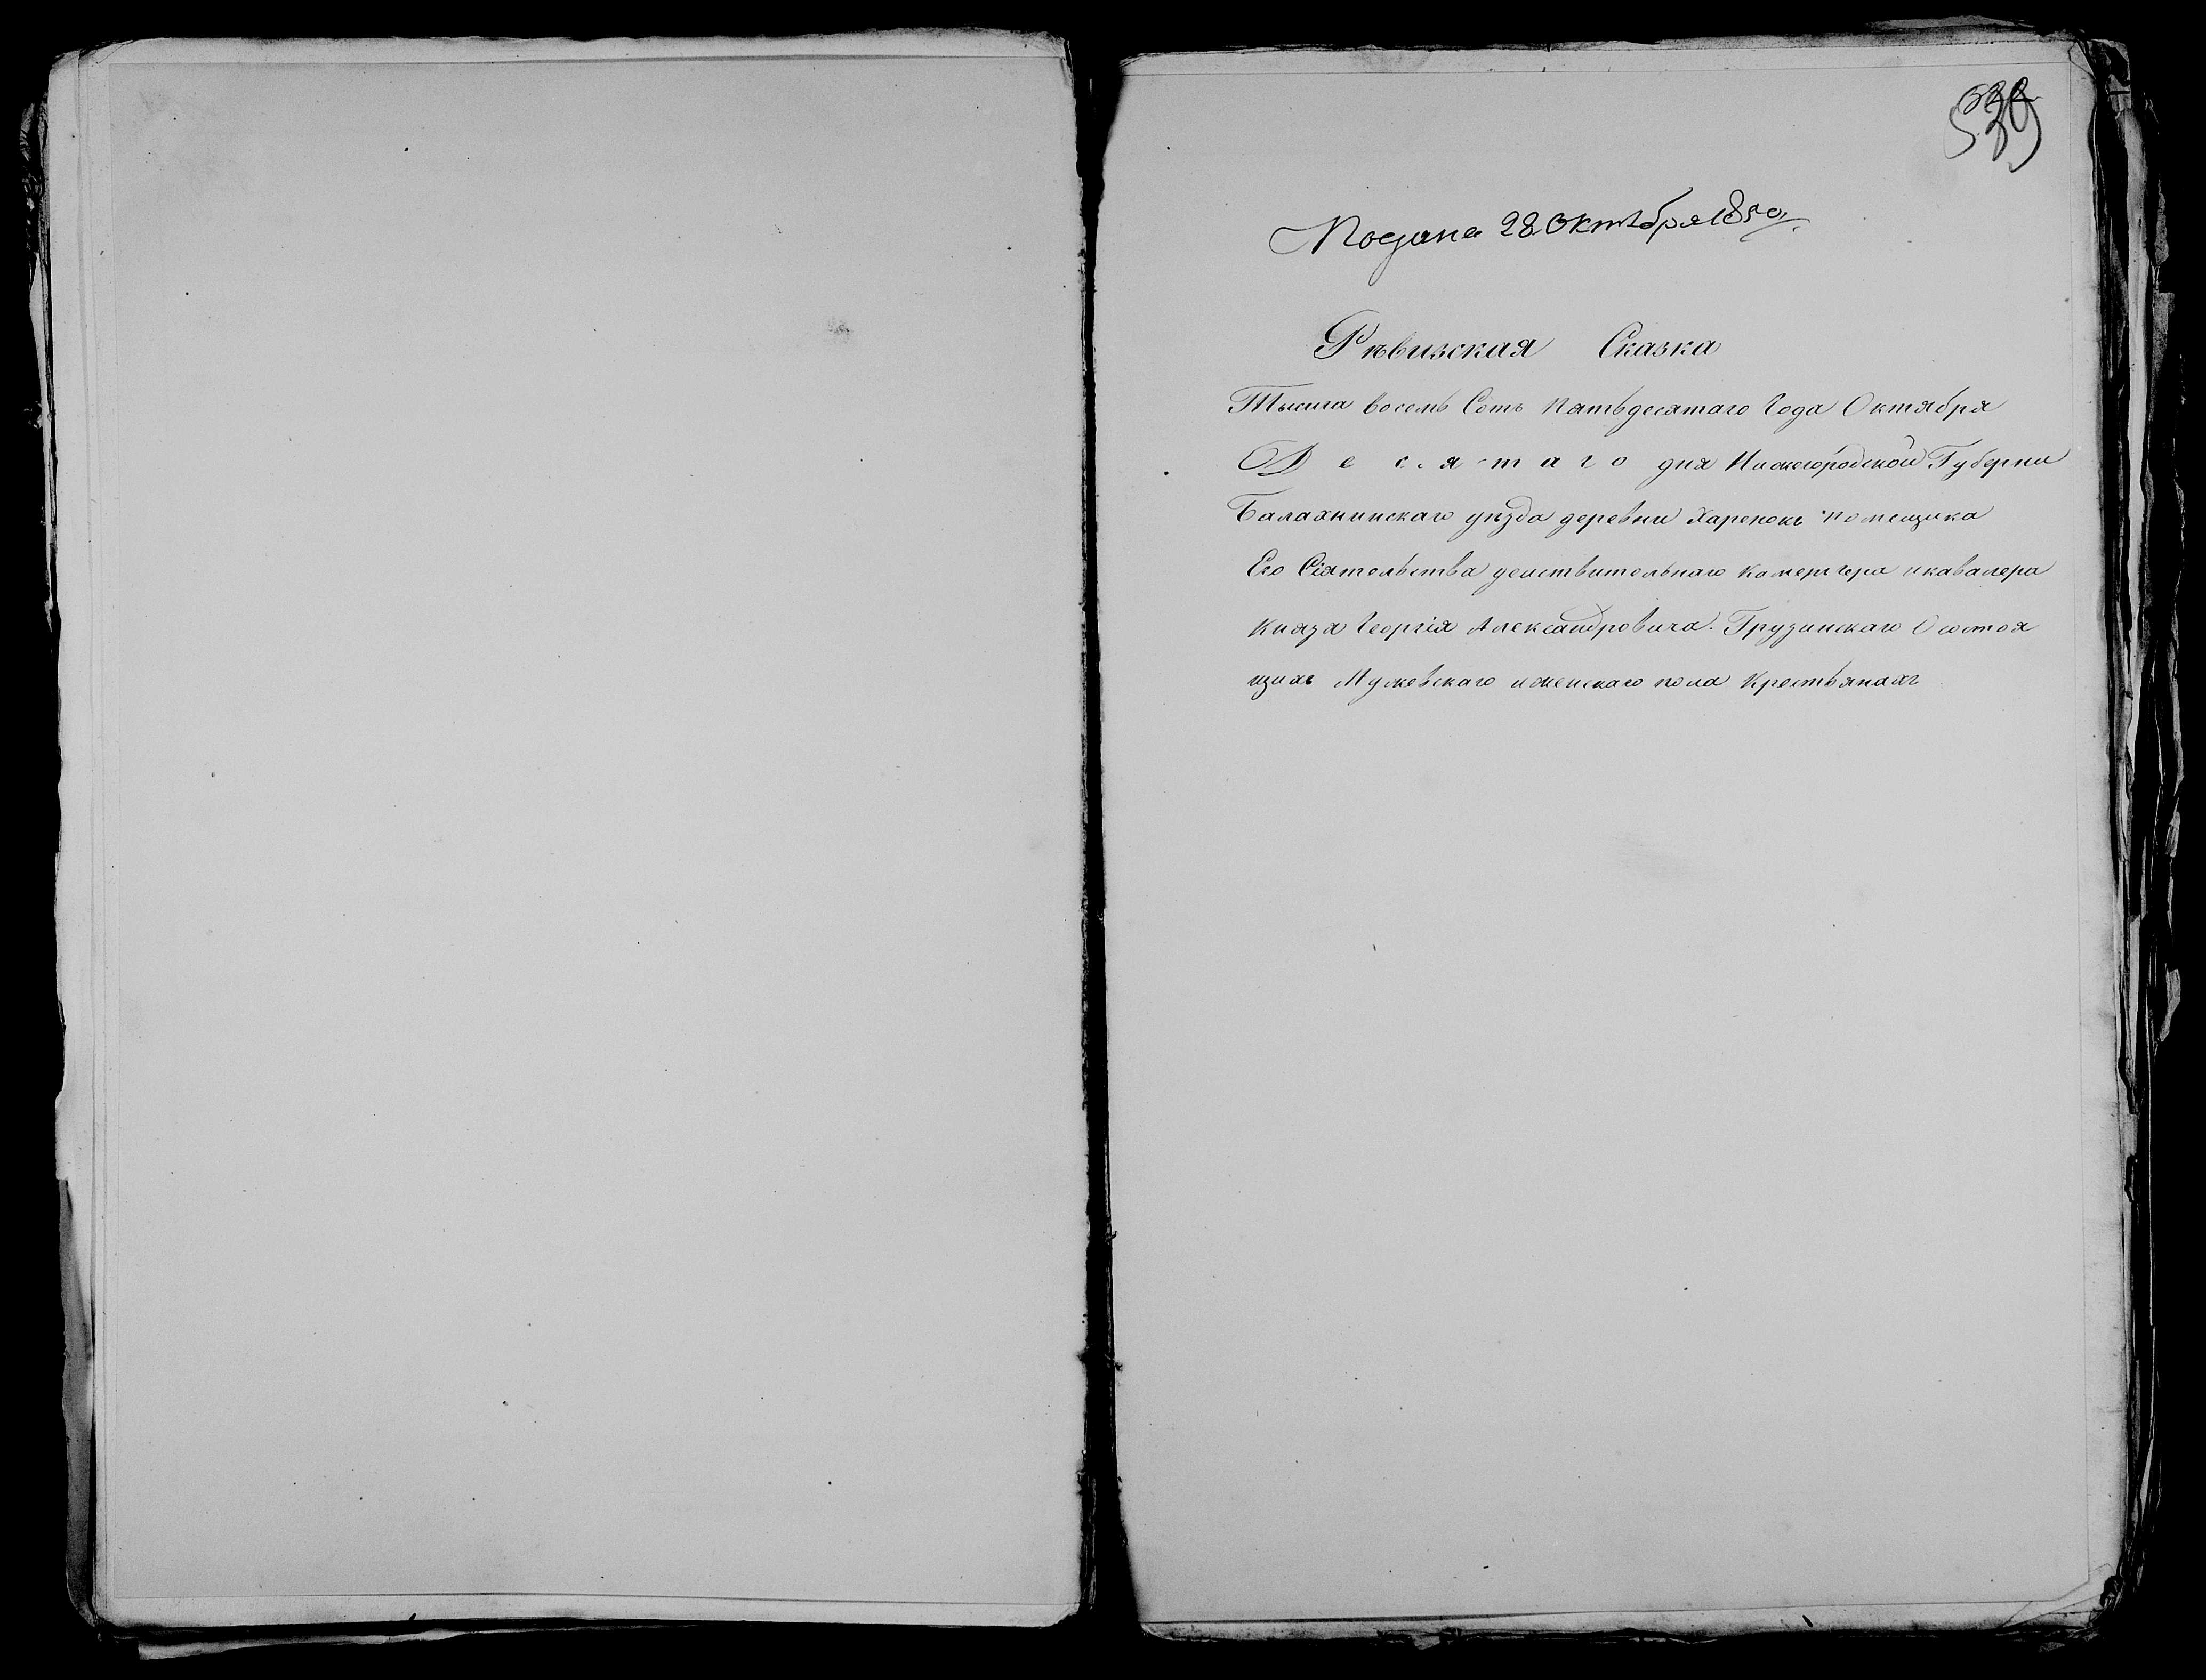 539
Подана 28 Октября 1850 г.
Ревизская Сказка
Тысяча восемь Сотъ Пятьдесятаго Года Октября
Десятаго дня Нижегородской Губерни
Балахнинскаго уезда деревни Харенокъ помещика
Его Сіятельства деиствительнаго Камергера икавалера
Князя Георгія Александровича Грузинскаго Осостоя
щихъ Мужевскаго иженскаго пола Крестьянахъ